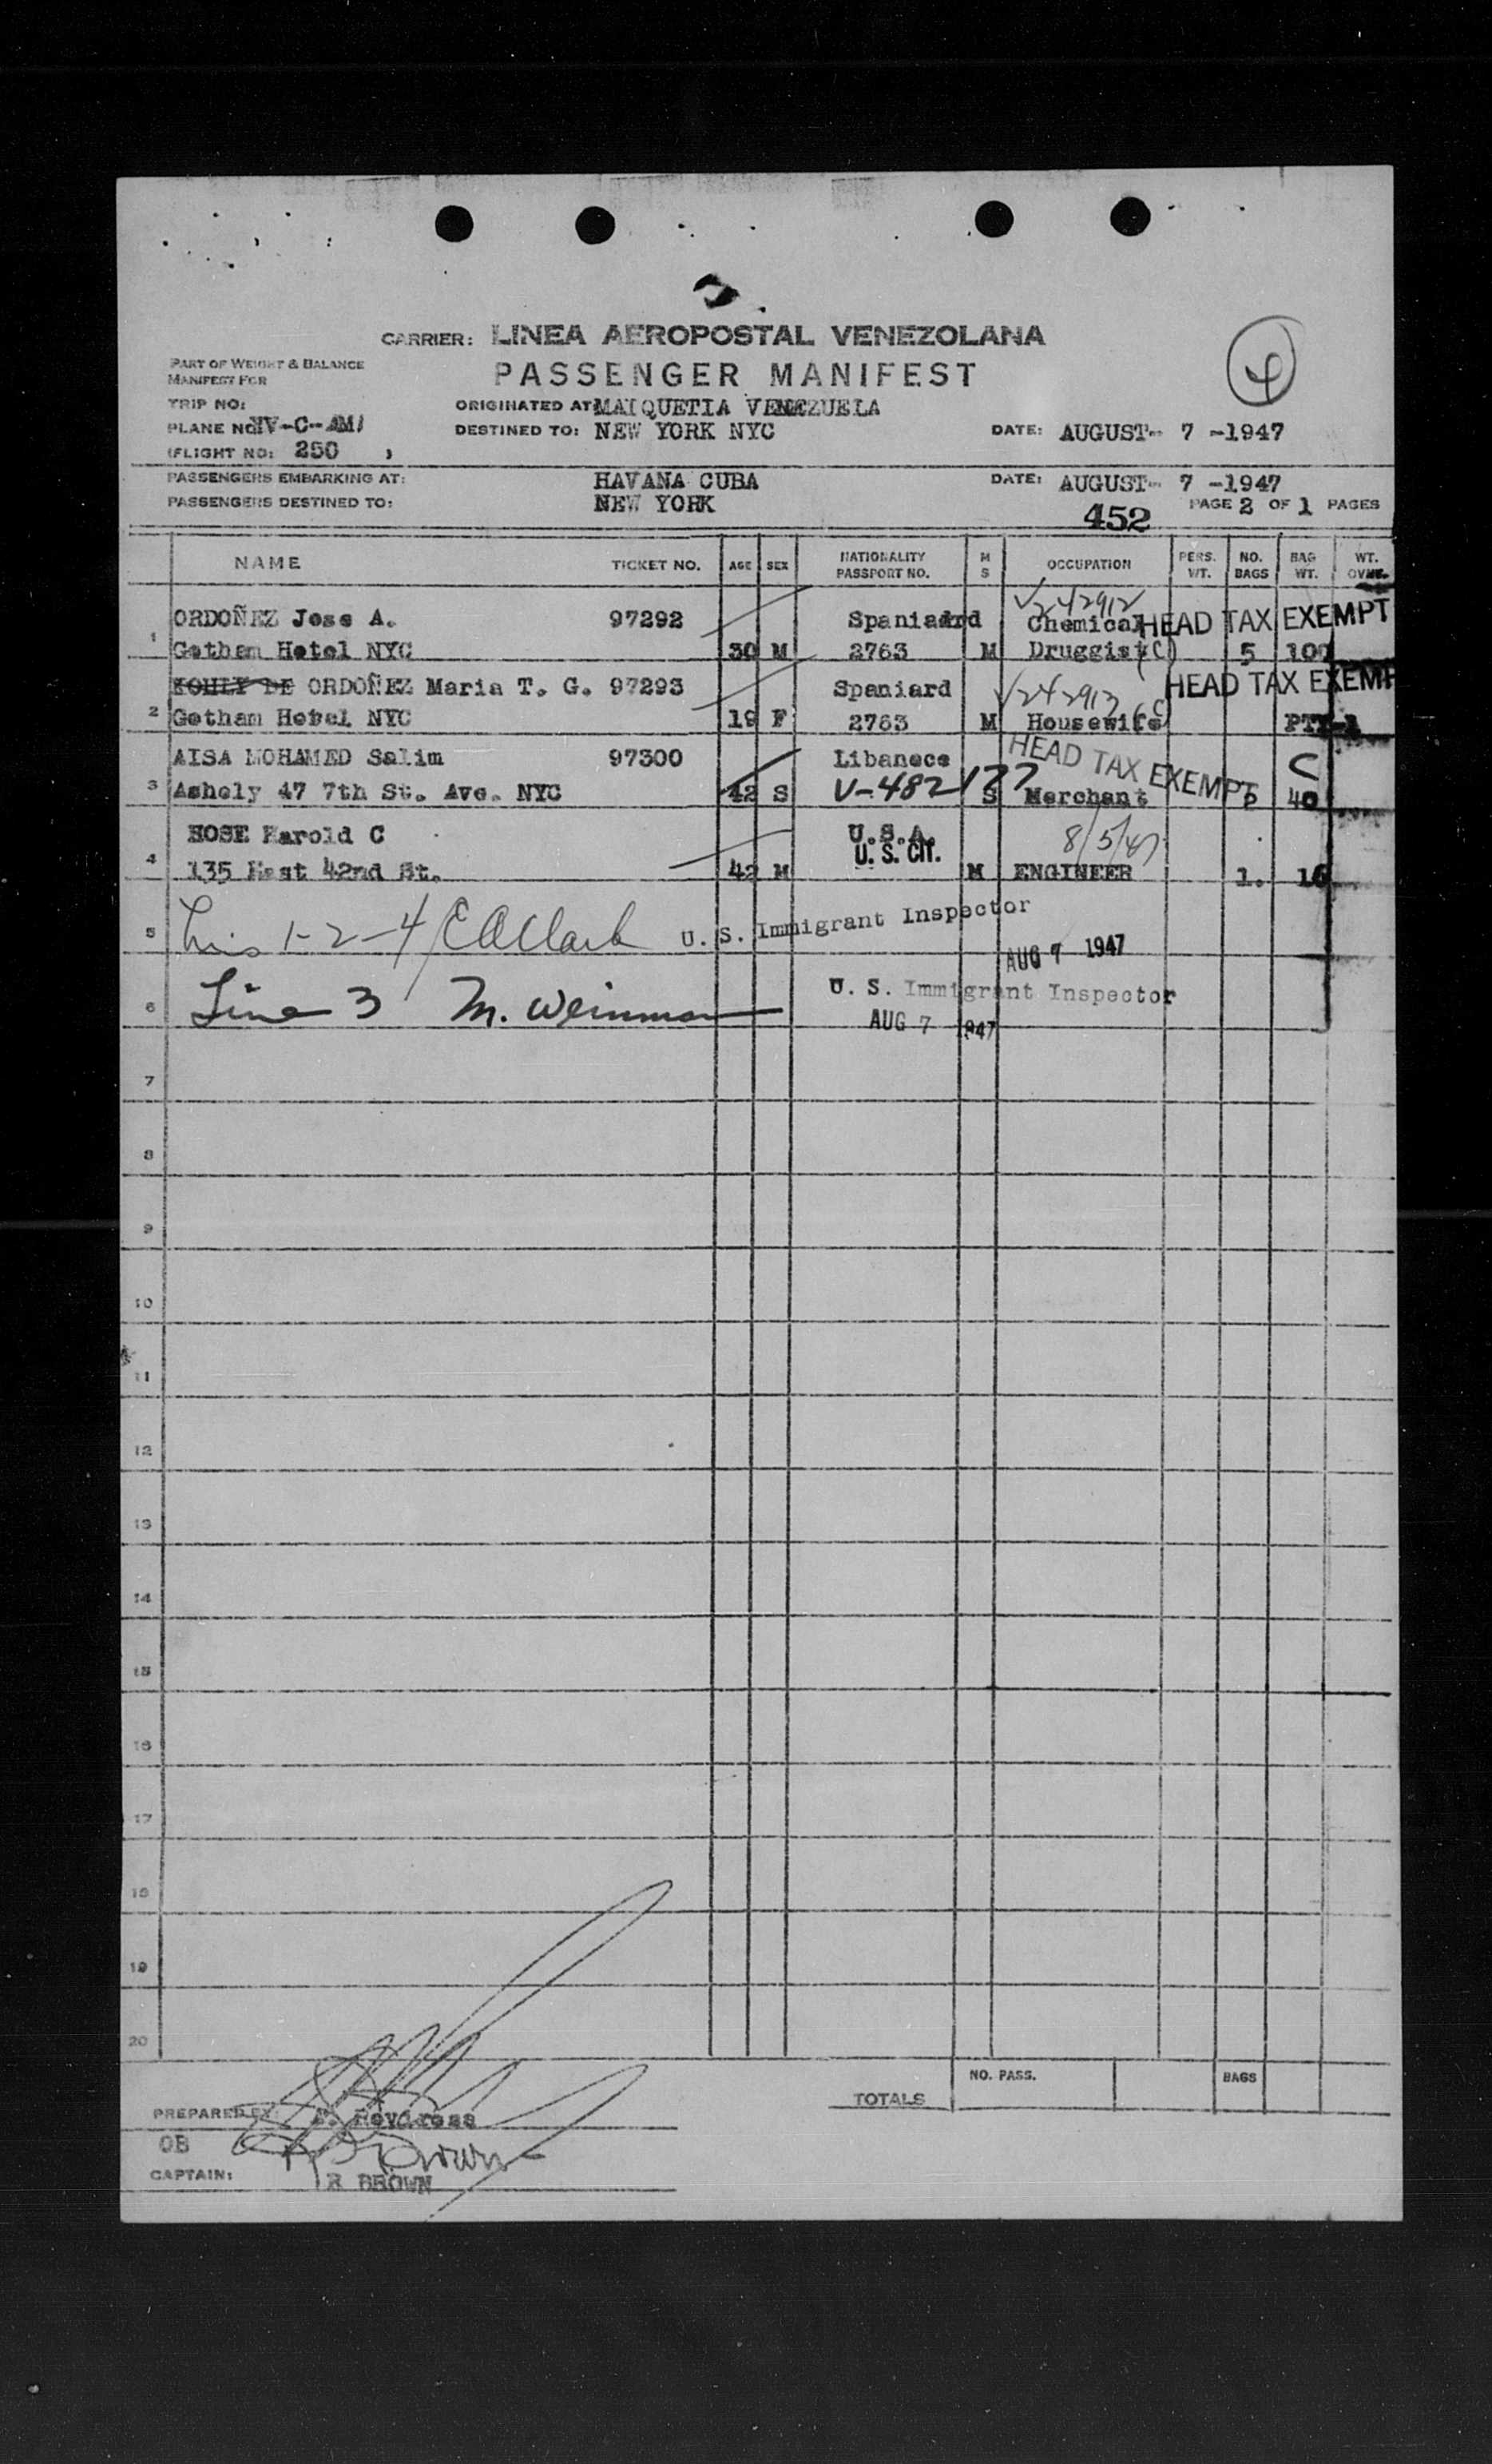 CARRIER: LINEA AEROPOSTAL VENEZOLANA
PASSENGER MANIFEST
4
PART OF WEIGHT & BALANCE
MANIFEST FOR
TRIP NO:
PLANE NO: YV-C-AMI
(FLIGHT NO: 250 )
ORIGINATED AT: MAIQUETIA VENEZUELA
DESTINED TO: NEW YORK NYC DATE: AUGUST- 7 -1947
PASSENGERS EMBARKING AT: HAVANA CUBA DATE: AUGUST- 7 -1947
PASSENGERS DESTINED TO: NEW YORK 452 PAGE 2 OF 1 PAGES
NAME TICKET NO. AGE SEX NATIONALITY PASSPORT NO. M S OCCUPATION PERS. WT. NO. BAGS BAG WT. WT.
V242912
ORDOÑEZ Jose A. 97292 Spaniard Chemical HEAD TAX EXEMPT
1 Gotham Hotel NYC 30 M 2763 M Druggist (C) 5 100
KOHLY DE ORDOÑEZ Maria T. G. 97293 Spaniard V242913 (C HEAD TAX EXEMP
2 Gotham Hotel NYC 19 F 2763 M Housewife
AISA MOHAMED Salim 97300 Libanece HEAD TAX EXEMPT C
3 Ashely 47 7th St. Ave. NYC 42 S V-482177 S Merchant 40
HOSE Harold C U.S.A. 8/5/47
U. S. CIT.
4 135 East 42nd St. 42 M M ENGINEER 1. 16
5 1-2-4 / C A Clark U. S. Immigrant Inspector
AUG 7 1947
6 Line 3 M. Weinman U. S. Immigrant Inspector
AUG 7 1947
7
8
9
10
11
12
13
14
15
16
17
18
19
20
TOTALS NO. PASS. BAGS
PREPARED BY:
OB R Brown
CAPTAIN: R BROWN